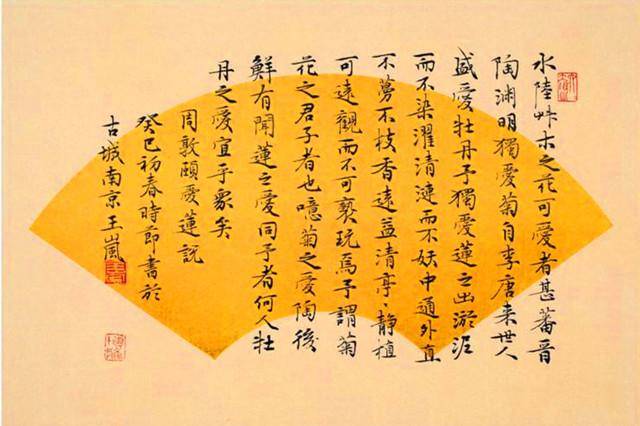 水陸艸木之花可愛者甚蕃晉
陶渊明獨愛菊自李唐来世人
盛愛牡丹予獨愛蓮之出淤泥
而不染濯清漣而不妖中通外直
不蔓不枝香遠益清亭、静植
可遠觀而不可褻玩焉予謂菊
花之君子者也噫菊之愛陶後
鮮有聞蓮之愛同予者何人牡
丹之愛宜乎眾矣
周敦頤愛蓮説
癸巳初春時節書於
古城南京王嵐